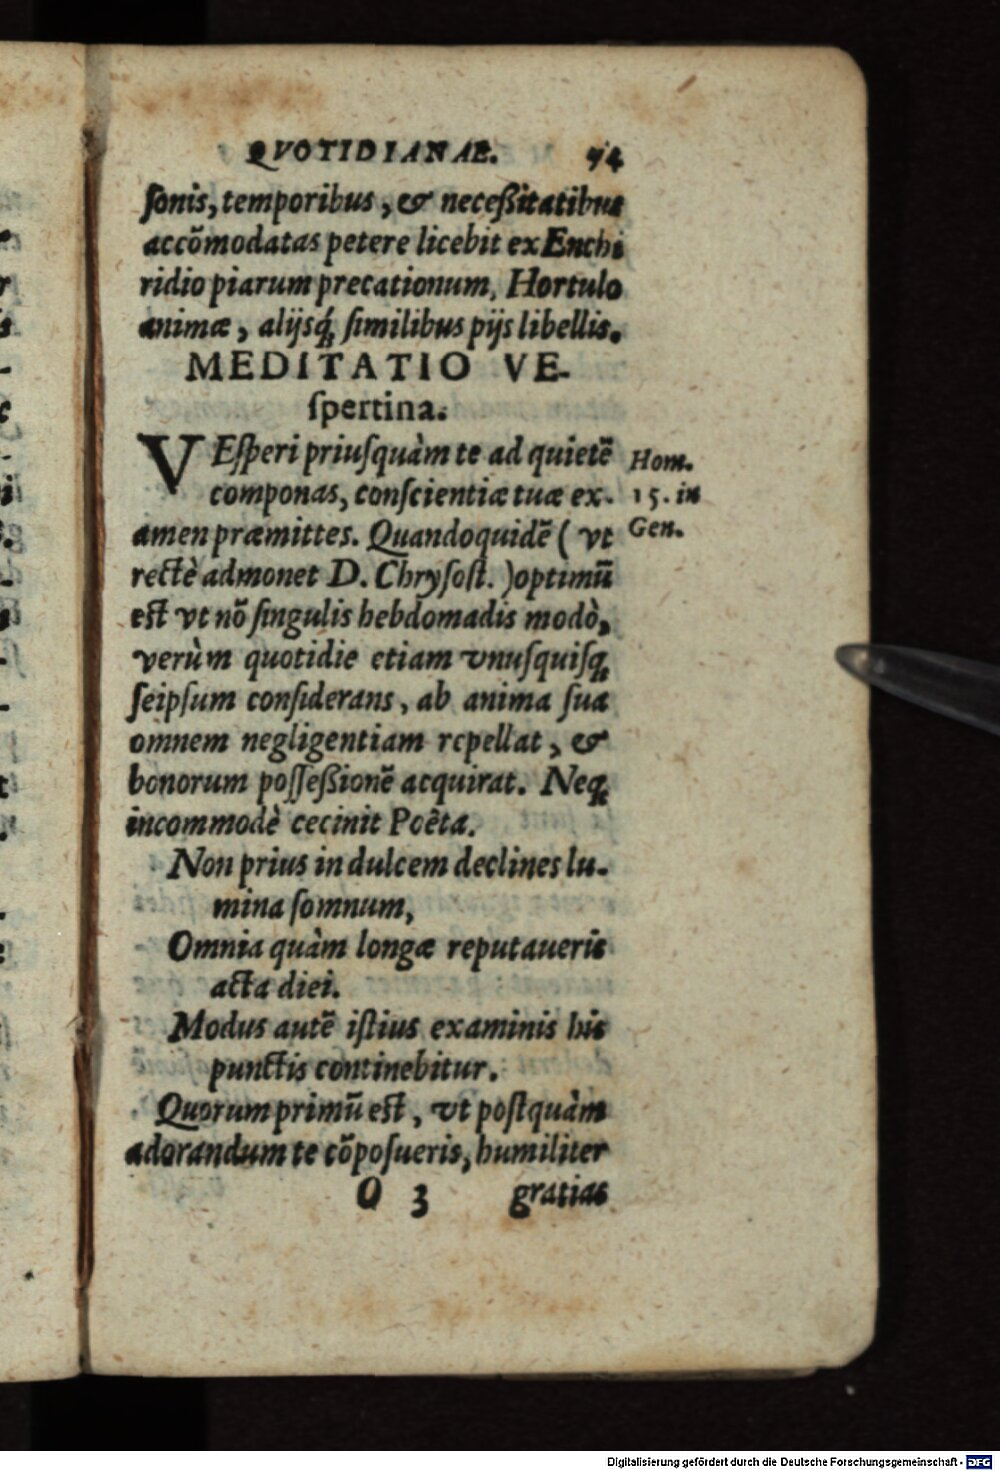 QVOTIDIANAE. 74
ſonis, temporibus, & neceßitatibus
accõmodatas petere licebit ex Enchi
ridio piarum precationum, Hortulo
animæ, alijsq́; ſimilibus pijs libellis.
MEDITATIO VE-
ſpertina.
VEſperi priuſquàm te ad quietẽ
componas, conſcientiæ tuæ ex-
amen præmittes. Quandoquidẽ ( vt
rectè admonet D. Chryſoſt. ) optimũ
est vt nõ ſingulis hebdomadis modò,
verùm quotidie etiam vnuſquiſq;
ſeipſum conſiderans, ab anima ſua
omnem negligentiam repellat, &
bonorum poſſeßionẽ acquirat. Neq;
incommodè cecinit Poëta.
Non prius in dulcem declines lu-
mina ſomnum,
Omnia quàm longæ reputaueris
acta diei.
Modus autẽ iſtius examinis his
punctis continebitur.
Quorum primũ est, vt poſtquàm
adorandum te cõpoſueris, humiliter
O 3 gratias
Hom.
15. in
Gen.
Digitalisierung gefördert durch die Deutsche Forschungsgemeinschaft - DFG